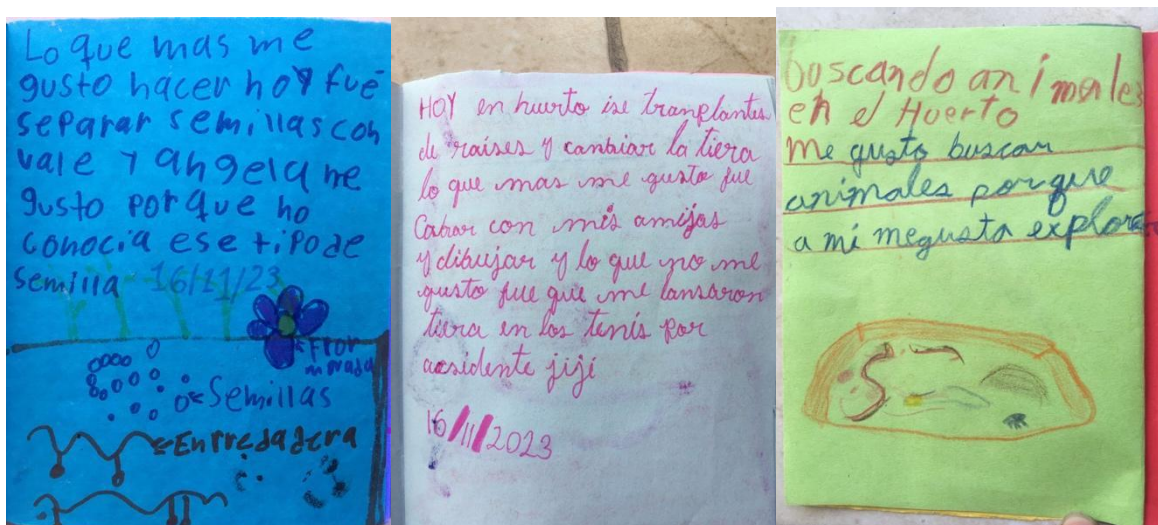 Lo que mas me
gusto hacer hoy fué
separar semillas con
vale y angela me
gusto porque no
conocia ese tipo de
semilla 16/11/23
Flor
morada
Semillas
Enredadera
HOY en huerto ise tranplantes
de raíses y canbiar la tiera
lo que mas me gusto fue
Cabar con mis amijas
y dibujar y lo que no me
gusto fue que me lansaron
tiera en los tenis por
acsidente jijí
16/11/2023
buscando animales
en el Huerto
Me gusto buscar
animales porque
a mi megusta explorar